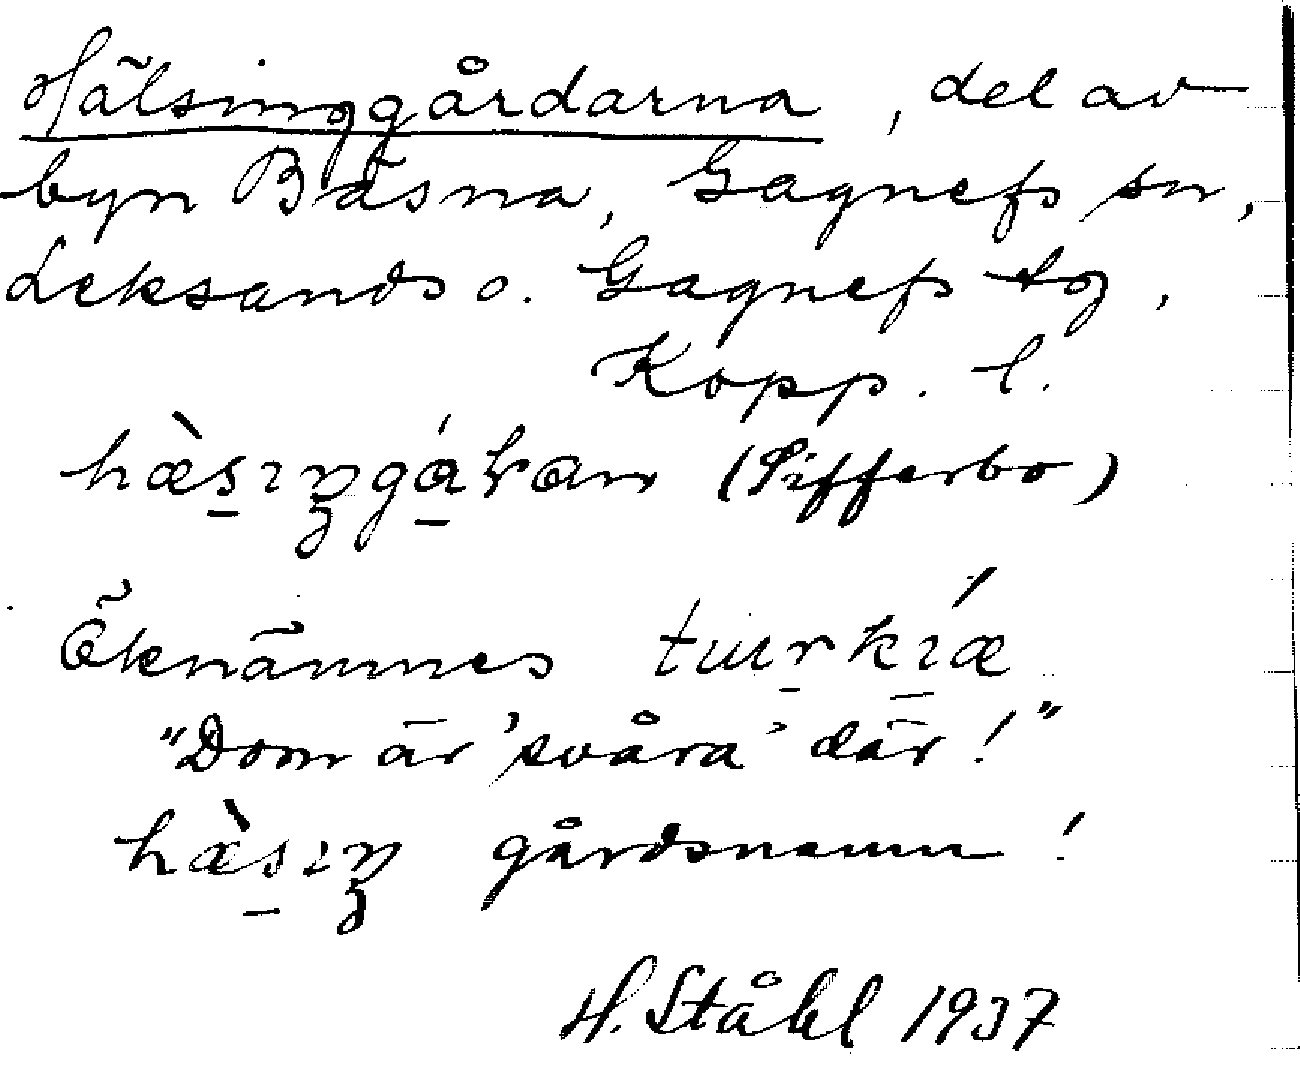 Hälsinggårdarna, del av
byn Bäsna, Gagnefs sn,
Leksands o. Gagnefs tg,
Kopp. l.
hæ̀sıŋgáɽan (Sifferbo)
Öknämnes turkíæ
"Dom är 'svåra' där!"
hæ̀sıŋ gårdsnamn!
H. Ståhl 1937